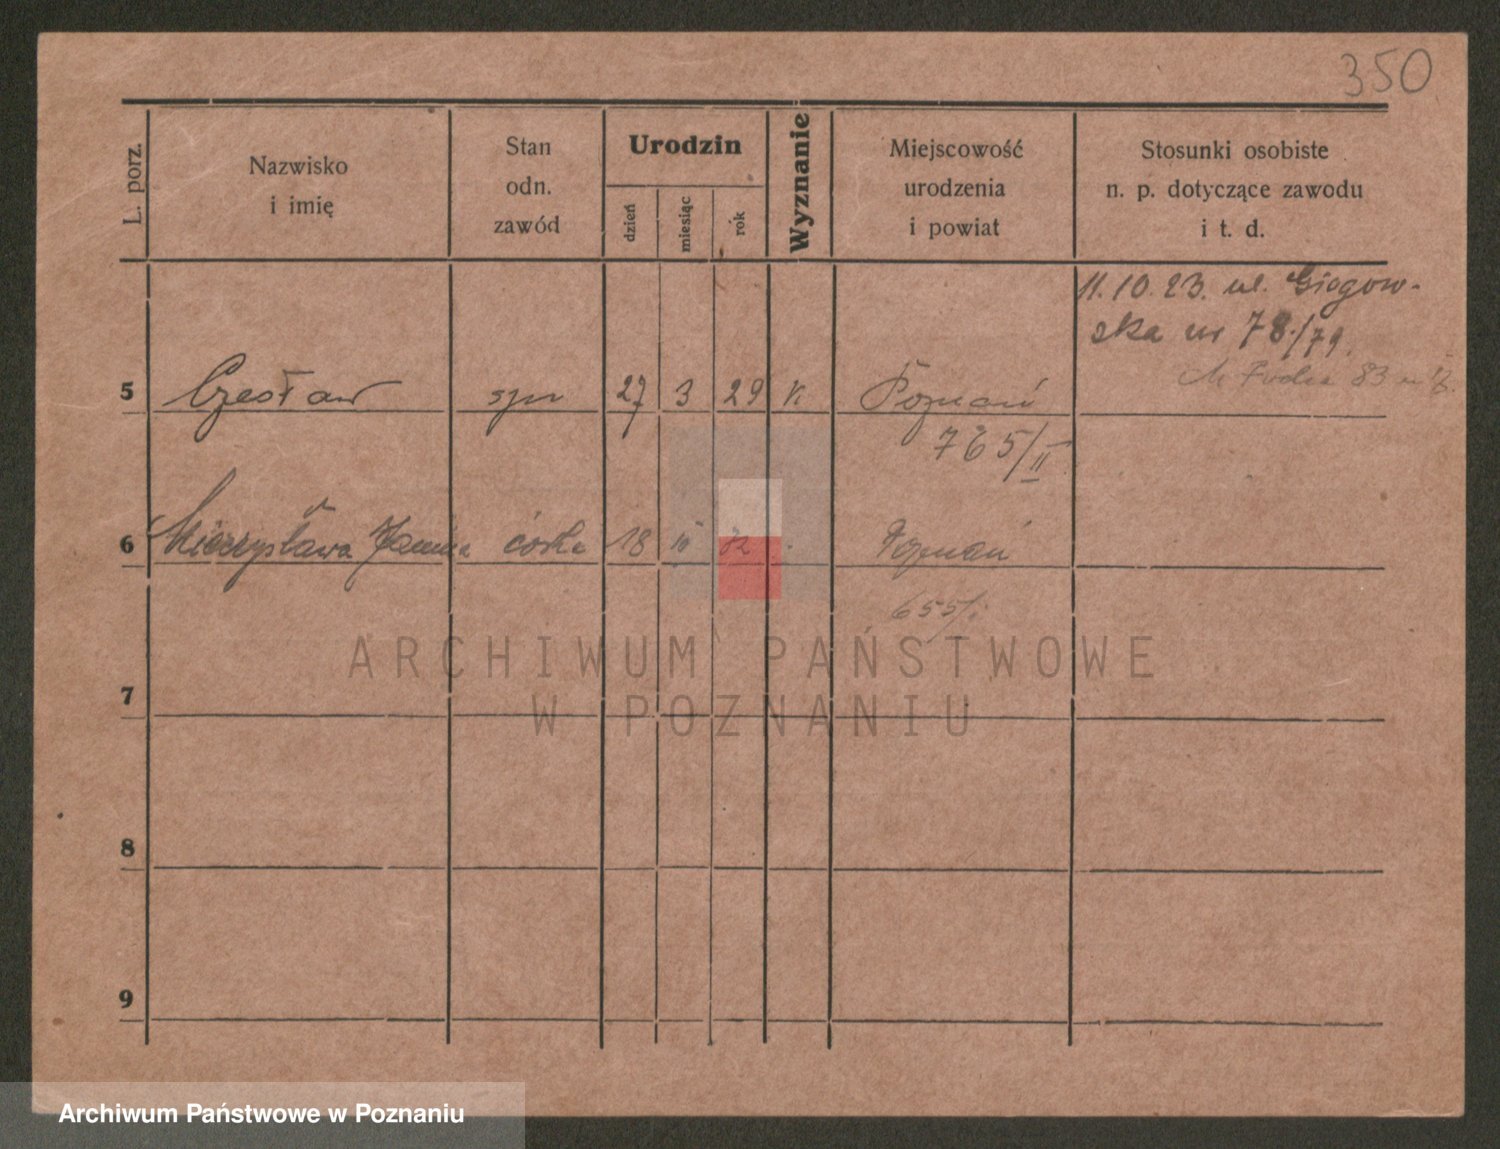 350
L. porz.
Nazwisko
i imię
Stan
odn.
zawód
Urodzin
dzień
miesiąc
rok
Wyznanie
Miejscowość
urodzenia
i powiat
Stosunki osobiste
n. p. dotyczące zawodu
i t. d.
11.10.23. ul. Glogow-
ska nr 78/79.
83
5 Czesław syn 27 3 29 K Poznań
765/II
6 Mieczysława Janina córka 18 Poznań
655/I
ARCHIWUM PAŃSTWOWE
W POZNANIU
7
8
9
Archiwum Państwowe w Poznaniu